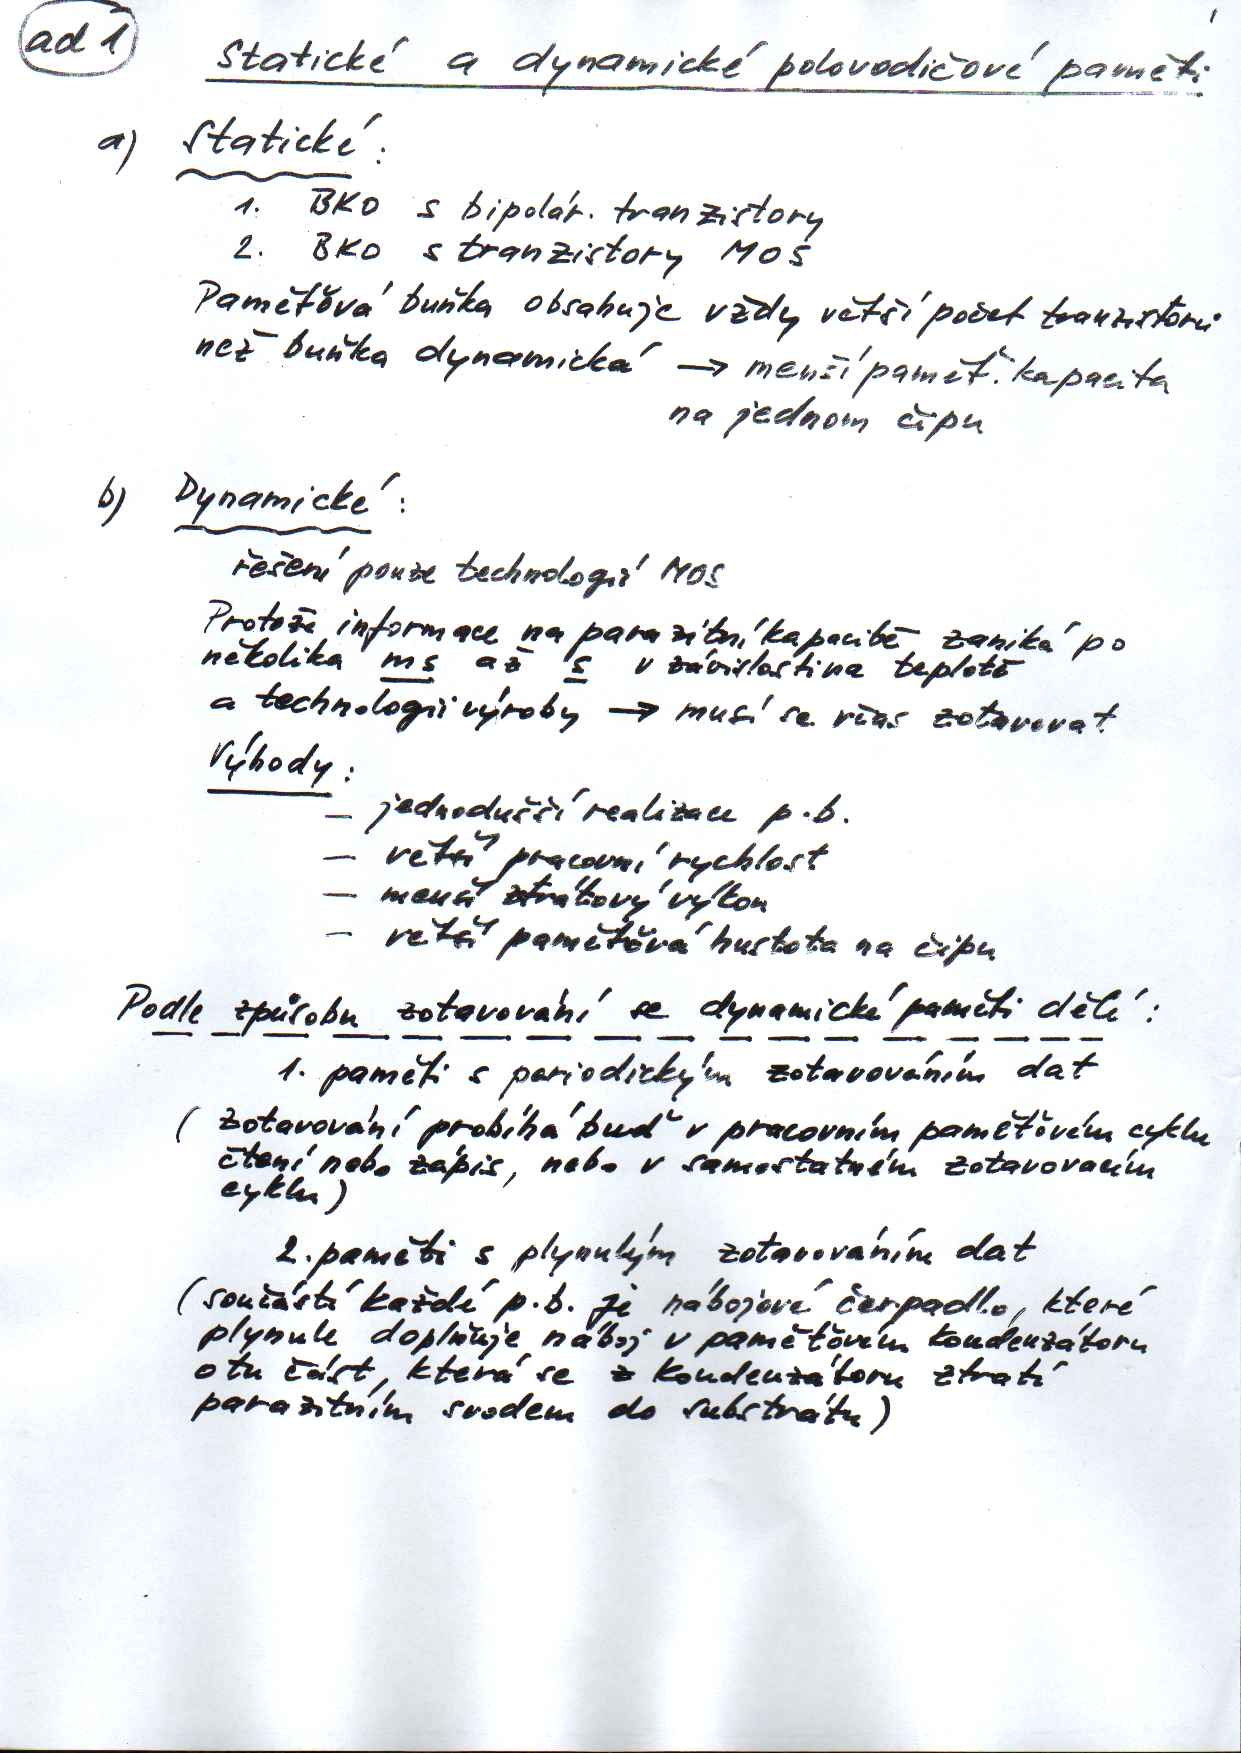 ad 1
Statické a dynamické polovodičové paměti
a) Statické:
1. BKO s bipolár. tranzistory
2. BKO s tranzistory MOS
Paměťová buňka obsahuje vždy větší počet tranzistorů
než buňka dynamická → menší paměť. kapacita
na jednom čipu
b) Dynamické:
řešení pouze technologií MOS
Protože informace na parazitní kapacitě zaniká po
několika ms až s v závislosti na teplotě
a technologii výroby → musí se včas zotavovat
Výhody:
- jednodušší realizace p.b.
- větší pracovní rychlost
- menší ztrátový výkon
- větší paměťová hustota na čipu
Podle způsobu zotavování se dynamické paměti dělí:
1. paměti s periodickým zotavováním dat
(zotavování probíhá buď v pracovním paměťovém cyklu
čtení nebo zápis, nebo v samostatném zotavovacím
cyklu)
2. paměti s plynulým zotavováním dat
(součástí každé p.b. je nábojové čerpadlo, které
plynule doplňuje náboj v paměťovém kondenzátoru
o tu část, která se z kondenzátoru ztratí
parazitním svodem do substrátu)